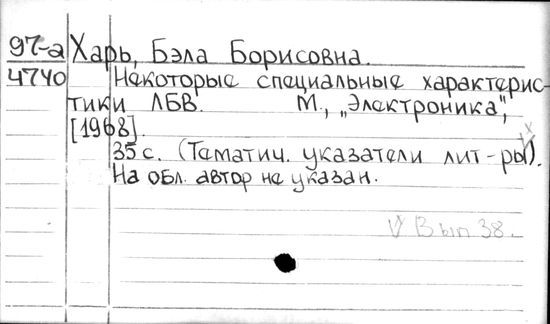 97-а Харь, Бэла Борисовна.
4740 Некоторые специальные характерис-
тики ЛБВ. М., „Электроника",
[1968].
35 с. (Тематич. указатели лит-ры).
На обл. автор не указан.
V Вып 38.